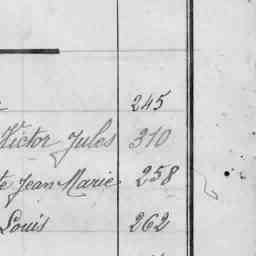 245
Victor Jules 310
te Jean Marie 258
Louis 262